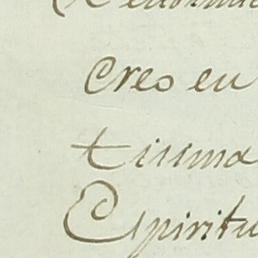 Creo en
tissima
Espiritu